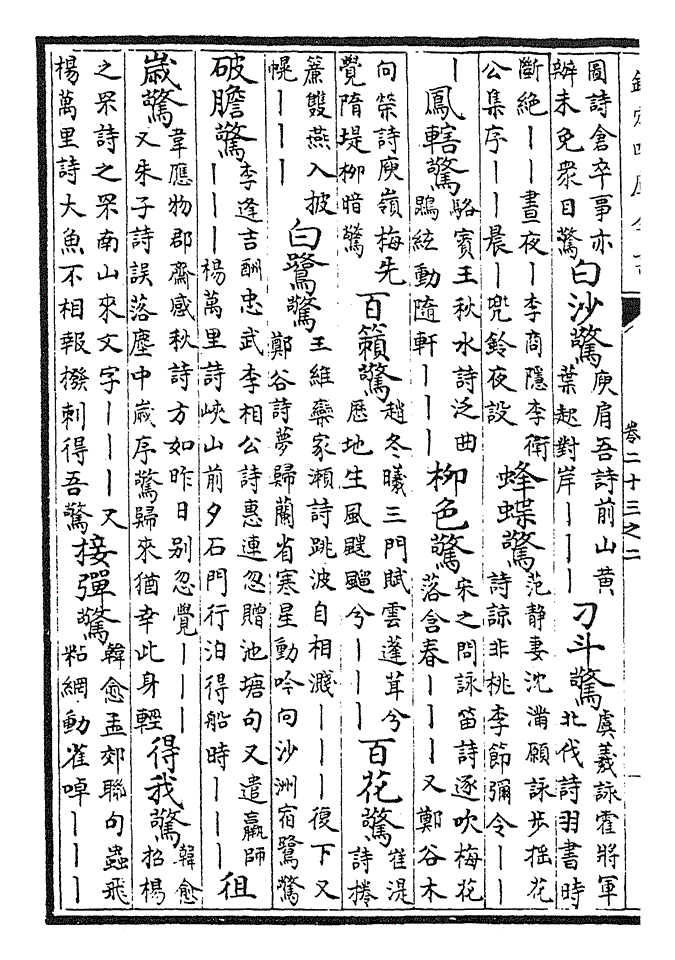 欽定四庫全書
卷二十三之二
圖詩倉卒事亦辦未免衆目驚白沙驚庾肩吾詩前山黄葉起對岸———刁斗驚虞羲詠霍將軍北代詩羽書時
斷絶——晝夜—李商隱李衛公集序——晨—兕鈴夜設蜂蝶驚范静妻沈滿願詠步揺花詩諒非桃李節彌令——
—鳳轄驚駱賓王秋水詩泛曲鵾絃動隨軒———柳色驚宋之問詠笛詩逐吹梅花落含春———又鄭谷木
向榮詩庾嶺梅先覺隋堤栁暗驚百籟驚趙冬曦三門賦雲蓬茸兮歴地生風颼飀兮———百花驚崔湜詩捲
簾雙燕入披幌———白鷺驚王維欒家瀬詩跳波自相濺———復下又鄭谷詩夢歸蘭省寒星動吟向沙洲宿鷺驚
破膽驚李逢吉酬忠武李相公詩惠連忽贈池塘句又遣羸師———楊萬里詩峽山前夕石門行泊得船時———徂
嵗驚韋應物郡齋感秋詩方如昨日别忽覺———又朱子詩誤落塵中嵗序驚歸來猶幸此身輕得我驚韓愈招楊
之罘詩之罘南山來文字———又楊萬里詩大魚不相報撥刺得吾驚接彈驚韓愈孟郊聯句蟲飛粘網動雀啅———